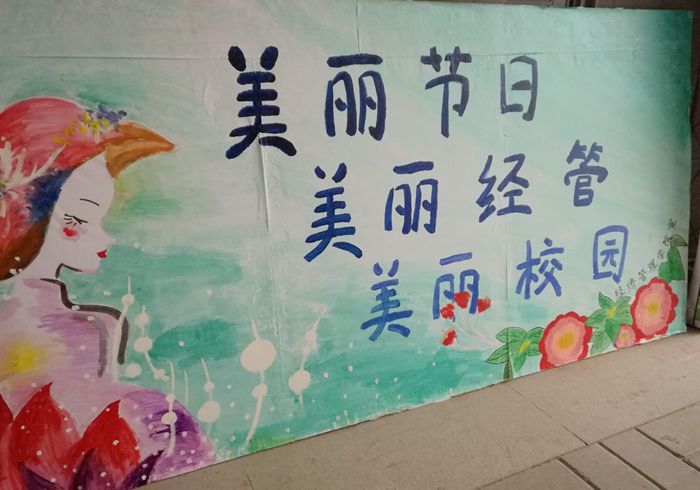 美丽节日
美丽经管
美丽校园
经济管理学院